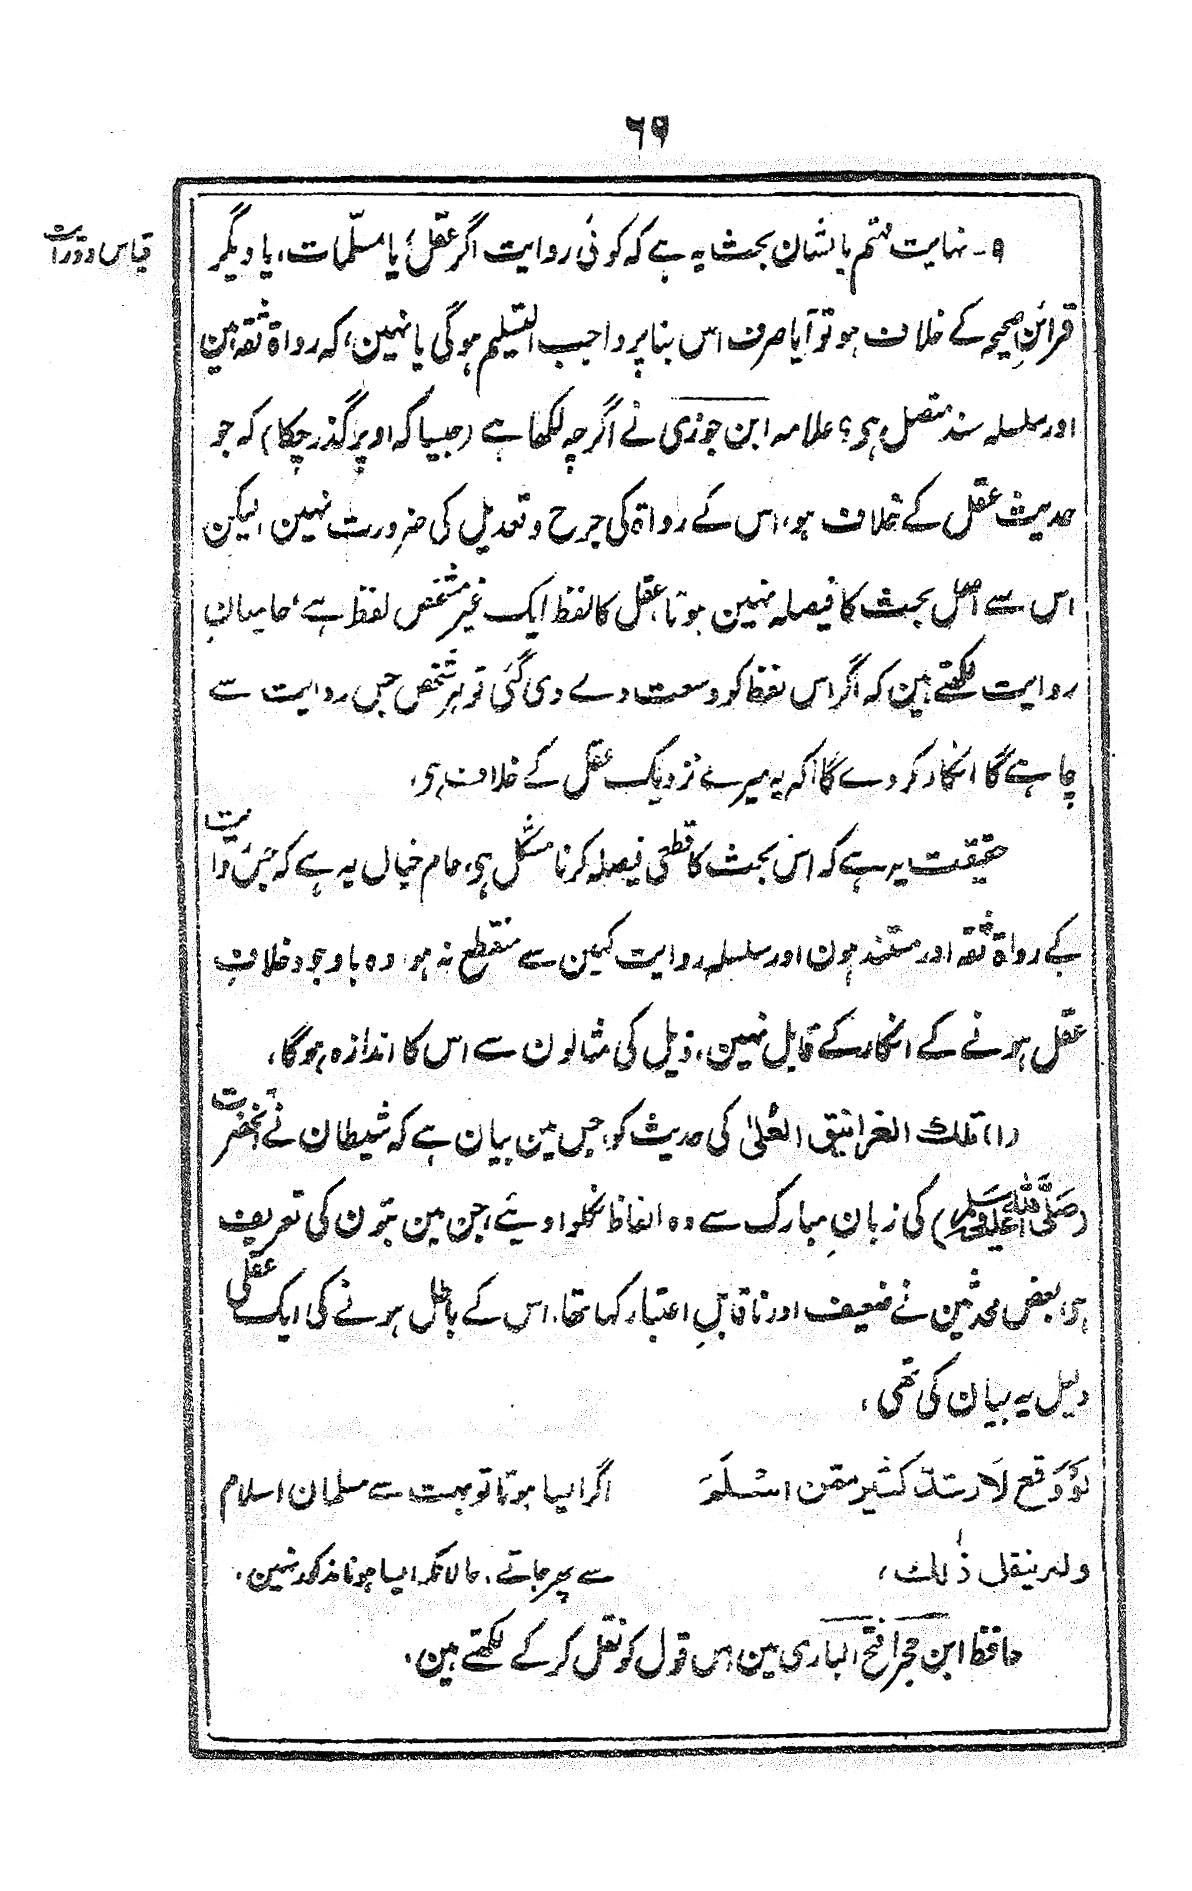 ۶۹
قیاس و درایت
۹۔ نہایت مہتم بالشان بحث یہ ہے کہ کوئی روایت اگر عقل، یا مسلّمات، یا دیگر
قرائنِ صحیحہ کے خلاف ہو تو آیا صرف اس بنا پر واجب التسلیم ہوگی یا نہین، کہ رواۃ ثقہ ہین
اور سلسلہ سند متصل ہی؟ علامہ ابن جوزی نے اگرچہ لکھا ہے (جیسا کہ اوپر گذر چکا) کہ جو
حدیث عقل کے خلاف ہو، اس کے رواۃ کی جرح و تعدیل کی ضرورت نہین، لیکن
اس سے اصل بحث کا فیصلہ نہین ہوتا، عقل کا لفظ ایک غیر مشخص لفظ ہے، حامیانِ
روایت لکھتے ہین کہ اگر اس لفظ کو وسعت دے دی گئی تو ہر شخص جس روایت سے
چاہے گا انکار کر دے گا کہ یہ میرے نزدیک عقل کے خلاف ہی،
حقیقت یہ ہے کہ اس بحث کا قطعی فیصلہ کرنا مشکل ہی، عام خیال یہ ہے کہ جس روایت
کے رواۃ ثقہ اور مستند ہون اور سلسلہ روایت کہین سے منقطع نہ ہو، وہ باوجود خلافِ
عقل ہونے کے انکار کے قابل نہین، ذیل کی مثالون سے اس کا اندازہ ہوگا،
(۱) تلک الغرانیق العُلیٰ کی حدیث کو، جس مین بیان ہے کہ شیطان نے آنحضرت
(صلی اللہ علیہ وسلم) کی زبانِ مبارک سے وہ الفاظ نکلوا دیئے، جن مین بتون کی تعریف
ہی، بعض محدثین نے ضعیف اور ناقابلِ اعتبار کہا تھا، اس کے باطل ہونے کی ایک عقلی
دلیل یہ بیان کی تھی،
لَوْ وَقع لَارتدّ کثیر ممّن اسْلَمَ اگر ایسا ہوتا تو بہت سے مسلمان اسلام
ولم ینقل ذٰلک، سے پھر جاتے، حالانکہ ایسا ہونا مذکور نہین،
حافظ ابن حجر فتح الباری مین اس قول کو نقل کر کے لکھتے ہین،